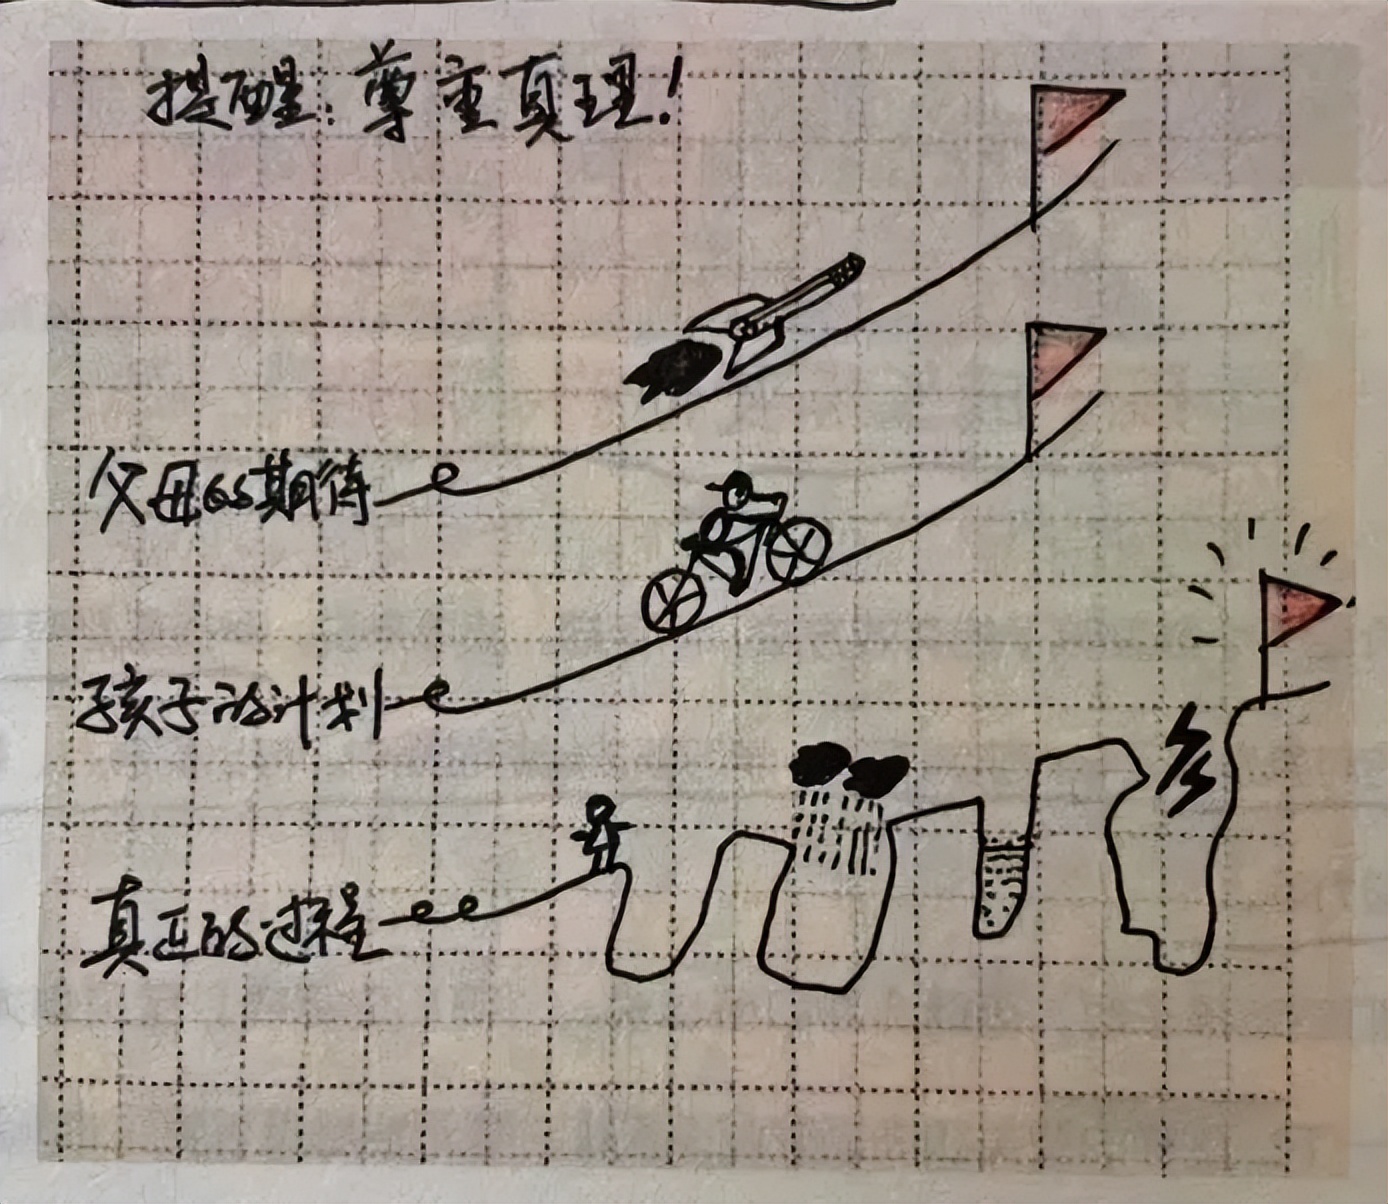 提醒：尊重真理！
父母的期待
孩子的计划
真正的过程